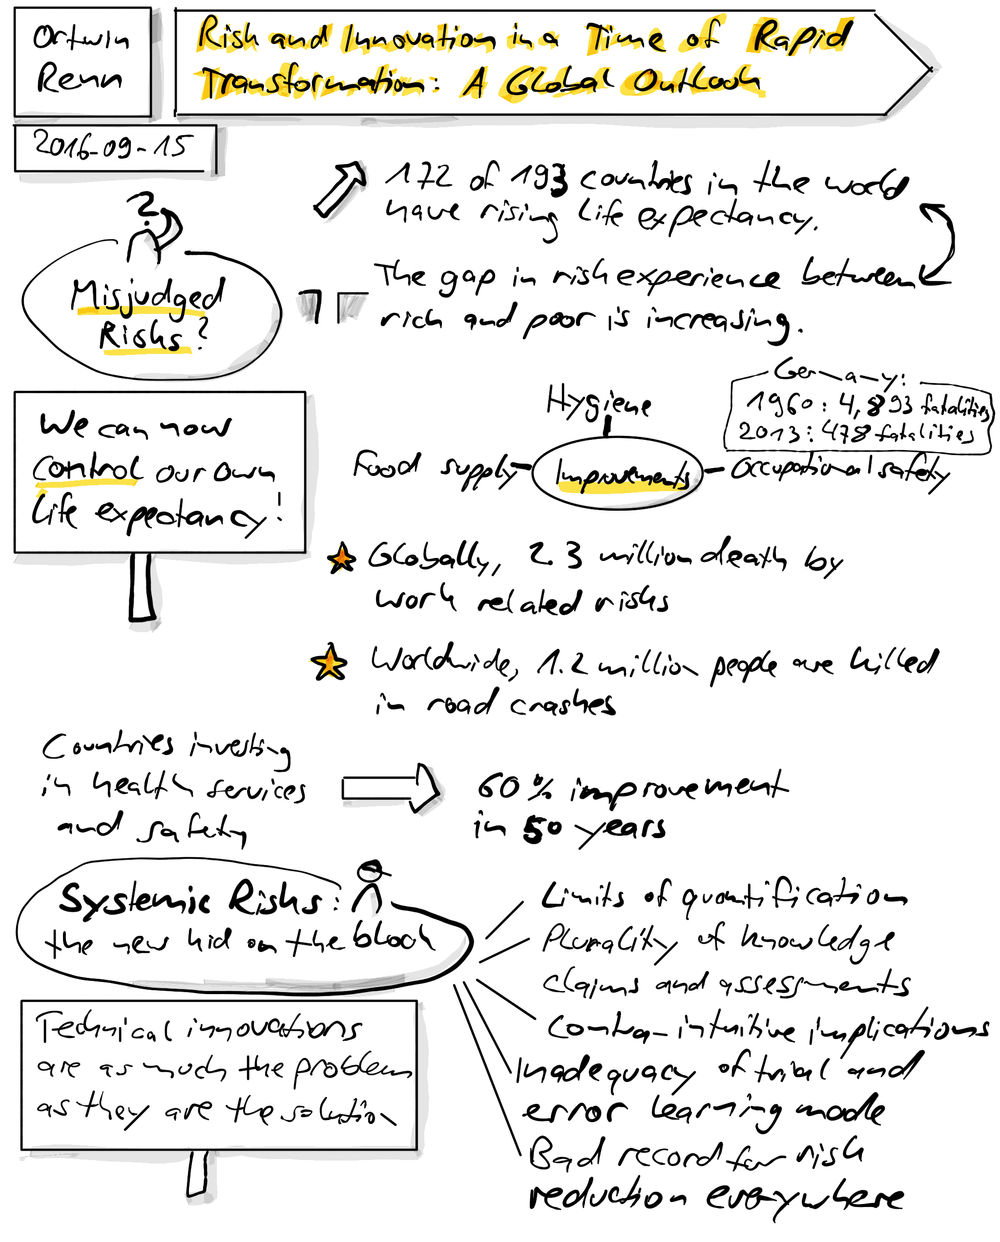 Ortwin
Renn
Risk and Innovation in a Time of Rapid
Transformation: A Global Outlook
2016-09-15
172 of 193 countries in the world
have rising life expectancy.
?
Misjudged
Risks?
The gap in risk experience between
rich and poor is increasing.
We can now
control our own
life expectancy!
Hygiene
Food supply
Improvements
Occupational safety
Germany:
1960: 4,893 fatalities
2013: 478 fatalities
Globally, 2.3 million death by
work related risks
Worldwide, 1.2 million people are killed
in road crashes
Countries investing
in health services
and safety
60% improvement
in 50 years
Systemic Risks:
the new kid on the block
Limits of quantification
Plurality of knowledge
claims and assessments
Contra-intuitive implications
Inadequacy of trial and
error learning mode
Bad record for risk
reduction everywhere
Technical innovations
are as much the problem
as they are the solution